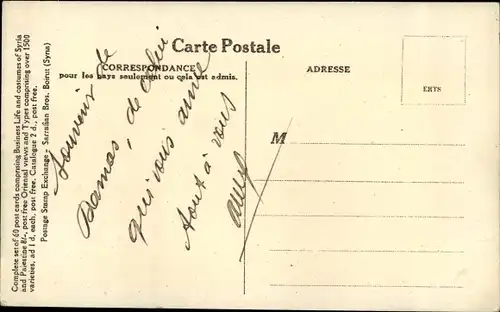 Carte Postale
CORRESPONDANCE
pour les pays seulement ou cela est admis.
ADRESSE
ERTS
M
Souvenir de
Damas, de celui
qui vous aime
tout à vous
Complete set of 60 post cards comprising Business Life and costumes of Syria
and Palestine 8/-, post free Oriental views and Types comprising over 1500
varieties, ad 1 d, each, post free. Catalogue 2 d., post free.
Postage Stamp Exchange - Sarrafian Bros. Beirut (Syria)